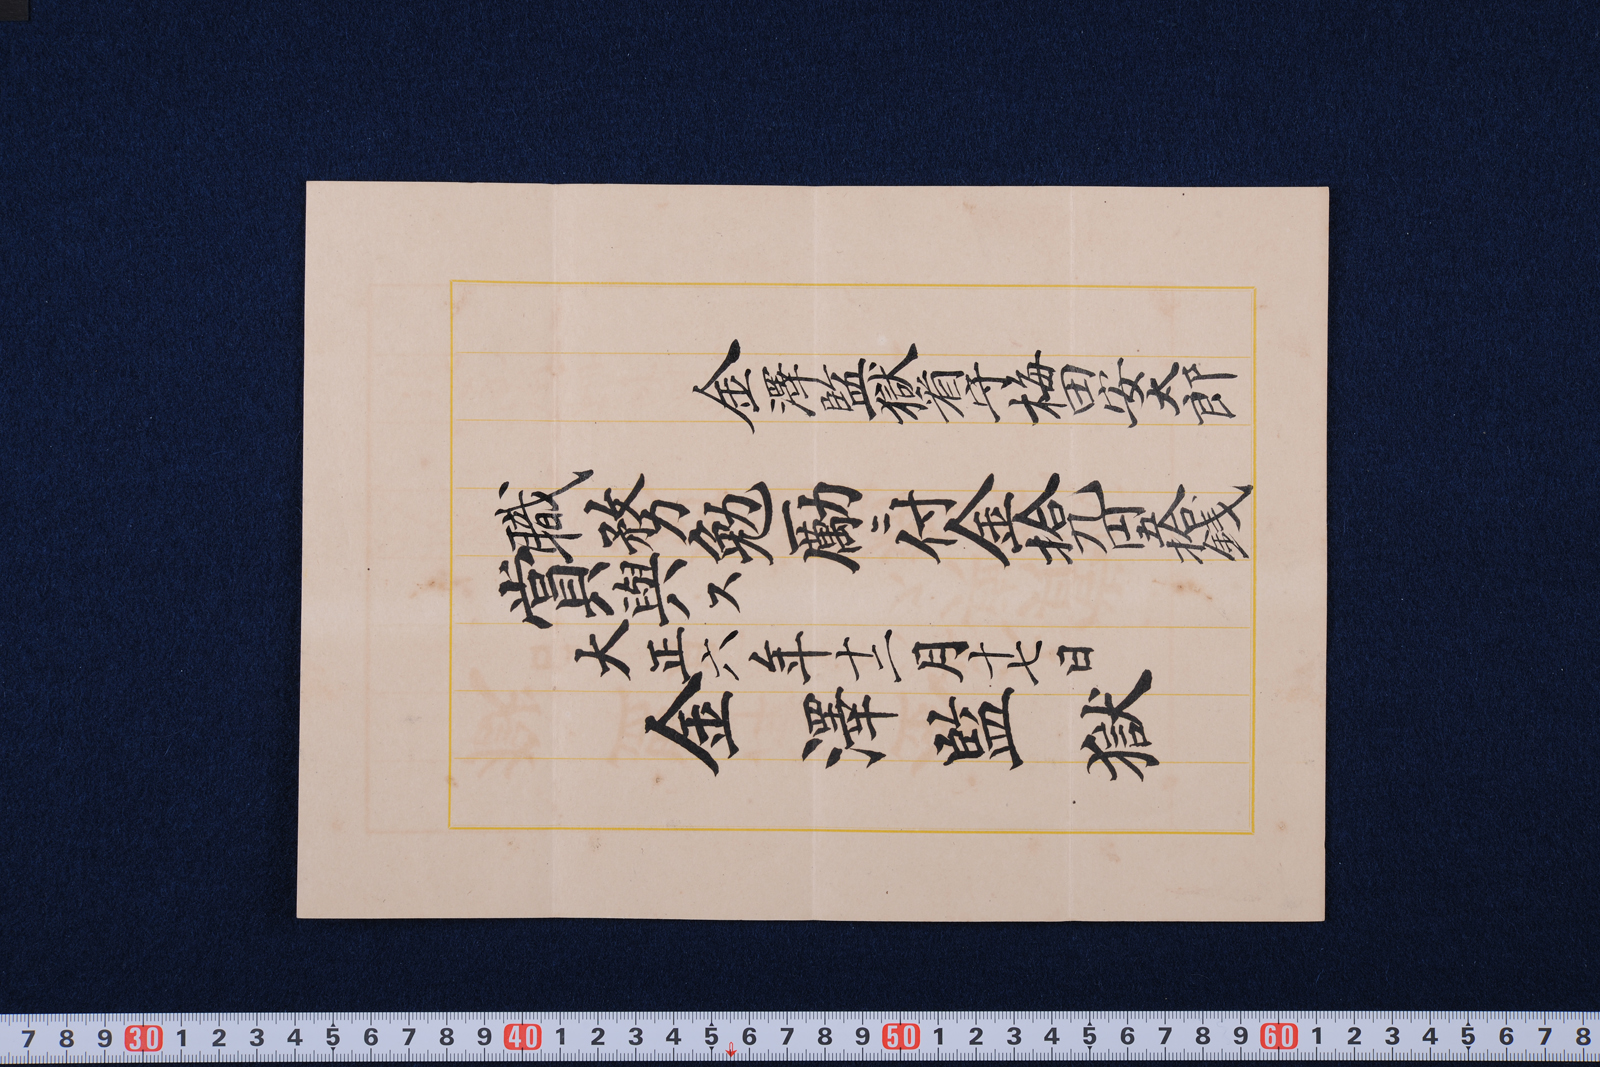 金澤監獄看守梅田安太郎
職務勉勵ニ付金拾九円五拾銭
賞與ス
大正六年十二月十七日
金澤監獄
7 8 9 30 1 2 3 4 5 6 7 8 9 40 1 2 3 4 5 6 7 8 9 50 1 2 3 4 5 6 7 8 9 60 1 2 3 4 5 6 7 8